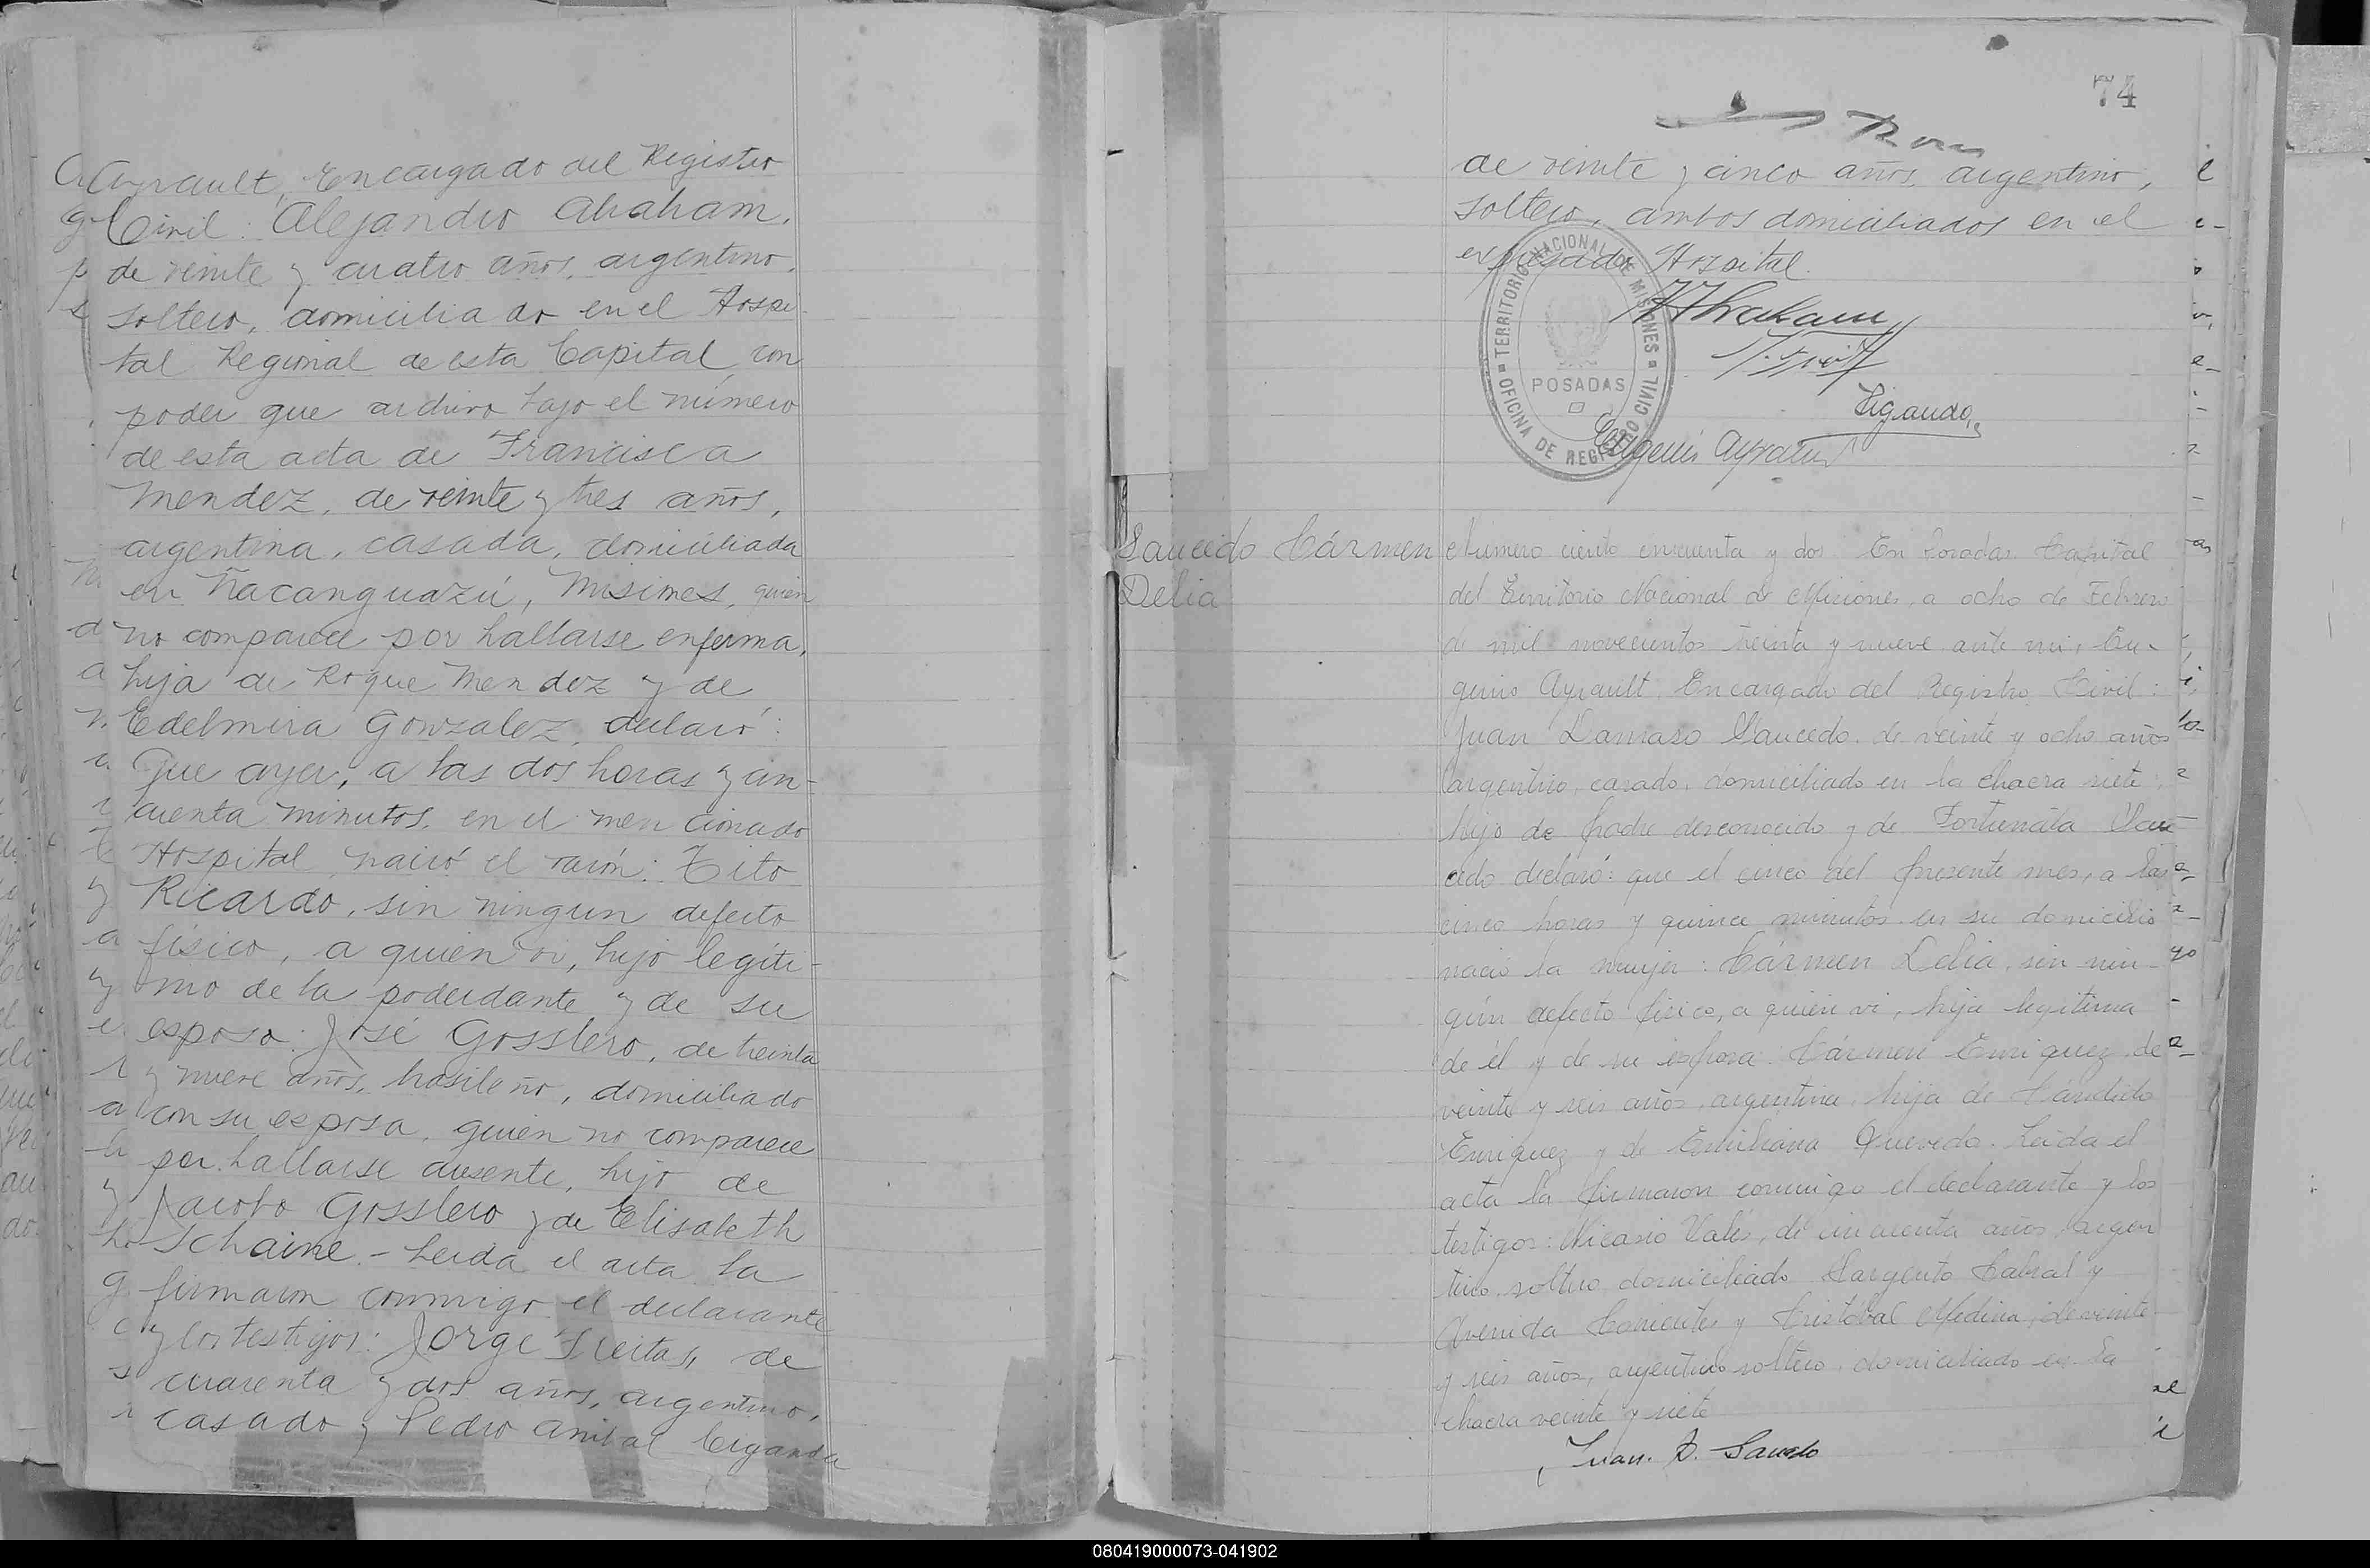 Ayrault, Encargado del Registro
Civil: Alejandro Abraham,
de veinte y cuatro años, argentino,
soltero, domiciliado en el Hospi-
tal Regional de esta Capital, con
poder que archivo bajo el número
de esta acta de Francisca
Mendez, de veinte y tres años,
argentina, casada, domiciliada
en Ñacanguazú, Misiones, quien
no comparece por hallarse enferma,
hija de Roque Mendez y de
Edelmira Gonzalez, declaró:
Que ayer, a las dos horas y cin-
cuenta minutos, en el mencionado
Hospital nació el varón: Tito
Ricardo, sin ningun defecto
físico, a quien vi, hijo legíti-
mo de la poderdante y de su
esposo: José Gosslero, de treinta
y nueve años, brasileño, domiciliado
con su esposa, quien no comparece
por hallarse ausente, hijo de
Jacobo Gosslero y de Elisabeth
Schaine.- Leida el acta la
firmaron conmigo el declarante
y los testigos: Jorge Freitas, de
cuarenta y dos años, argentino,
casado y Pedro Anibal Ciganda
74
de veinte y cinco años, argentino,
soltero, ambos domiciliados en el
expresado Hospital.
TERRITORIO NACIONAL DE MISIONES
POSADAS
OFICINA DE REGISTRO CIVIL
AAbraham
Ciganda
Eugenio Ayrault
Saucedo Cármen
Delia
Número ciento cincuenta y dos. En Posadas, Capital
del Territorio Nacional de Misiones, a ocho de Febrero
de mil novecientos treinta y nueve ante mi, Eu-
genio Ayrault, Encargado del Registro Civil:
Juan Damaso Saucedo, de veinte y ocho años
argentino, casado, domiciliado en la chacra siete,
hijo de padre desconocido y de Fortunata Sau-
cedo declaró: que el cinco del presente mes, a las
cinco horas y quince minutos en su domicilio
nació la mujer: Cármen Delia, sin nin-
gún defecto físico, a quien vi, hija legítima
de él y de su esposa: Cármen Enriquez, de
veinte y seis años, argentina, hija de Cándido
Enriquez y de Emiliana Quevedo. Leida el
acta la firmaron conmigo el declarante y los
testigos: Nicasio Valés, de cincuenta años, argen
tino, soltero domiciliado Sargento Cabral y
Avenida Corrientes y Cristóbal Medina, de veinte
y seis años, argentino soltero, domiciliado en la
chacra veinte y siete
Juan. D. Saucedo
080419000073-041902